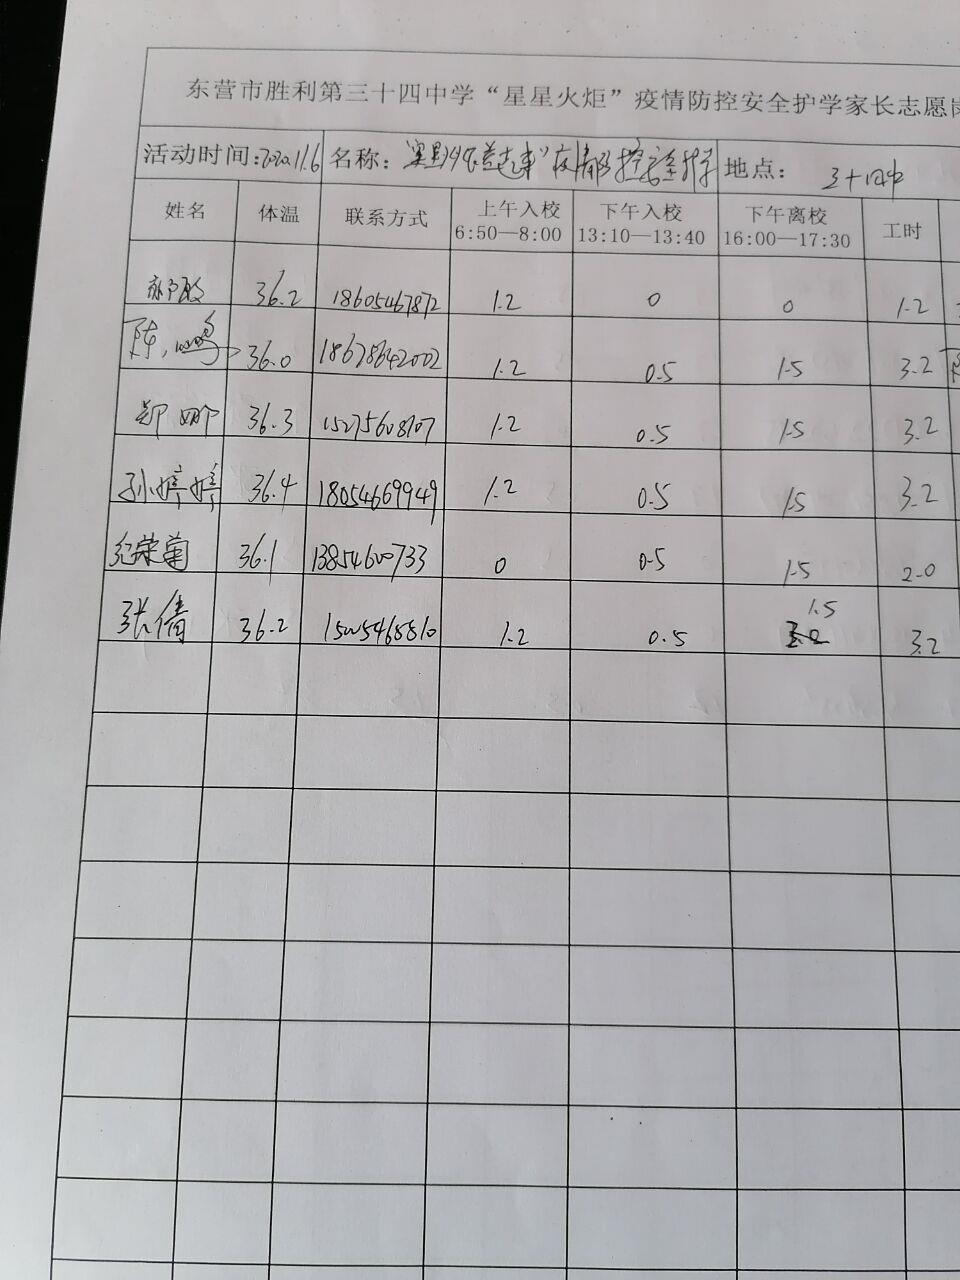 东营市胜利第三十四中学“星星火炬”疫情防控安全护学家长志愿岗
活动时间:2020.11.6 名称: 地点: 三十四中
姓名 体温 联系方式 上午入校 下午入校 下午离校 工时
6:50—8:00 13:10—13:40 16:00—17:30
36.2 18605467872 1.2 0 0 1.2
陈 鸣 36.0 18678642002 1.2 0.5 1.5 3.2
郑娜 36.3 15275608707 1.2 0.5 1.5 3.2
孙婷婷 36.4 18054669949 1.2 0.5 1.5 3.2
纪荣菊 36.1 13854600733 0 0.5 1.5 2.0
1.5
张倩 36.2 1.2 0.5 3.2